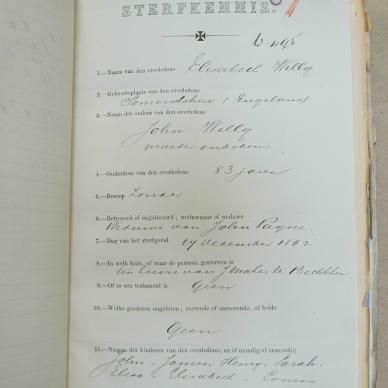 STERFKENNIS.
1.—Naam van den overledene Elisabeth Willy
2.—Geboorteplaats van den overledene
Somersetshire / Engeland
3.—Namen der ouders van den overledene
John Willy
moeder onbekend
4.—Ouderdom van den overledene 83 jaren
5.—Beroep Zonder
6.—Getrouwd of ongetrouwd; weduwnaar of weduwe
Weduwe van John Payne
7.—Dag van het sterfgeval 24 December 1802
8.—In welk huis, of waar de persoon gestorven is
ten huize van J Maher te Bethlehem
9.—Of er een testament is Geen
10.—Welke goederen nagelaten; roerende of onroerende, of beide
Geen
11.—Namen der kinderen van den overledene; en of mondig of onmondig
John - James, Henry, Sarah,
Eliza - Elisabeth -